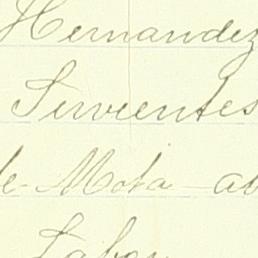 Hernandez
Sirvientes
de Mota ab
Labor